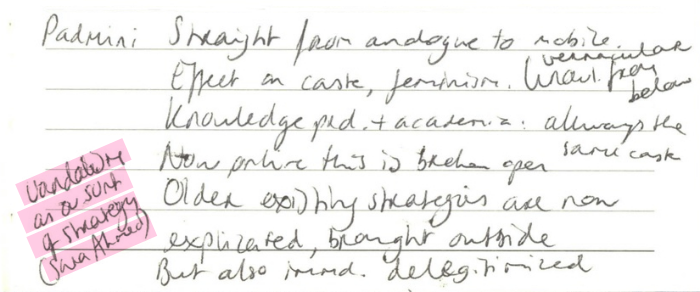 Padmini Straight from analogue to mobile.
Effect on caste, feminism. Univ. from
vernacular
below
Knowledge prod. + academia: allways the
same caste
Now online this is broken open
Older existing strategies are now
explicated, brought outside
But also immed. delegitimized
vandalism
as a sort
of strategy
(Sara Ahmed)